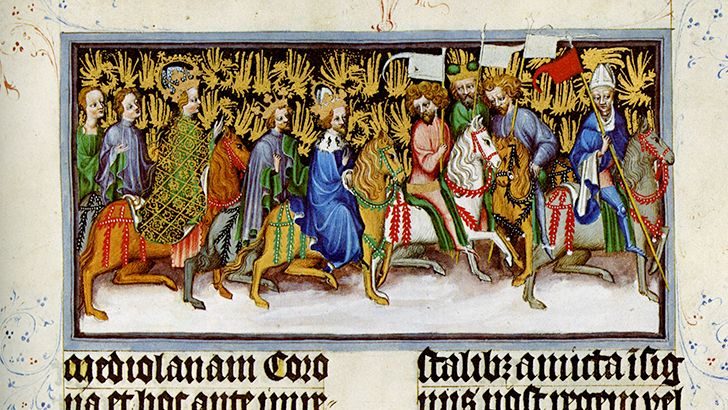 mediolanam Coro
na et hoc ante impe
stalibꝫ amicta īsig
niis post regem vel